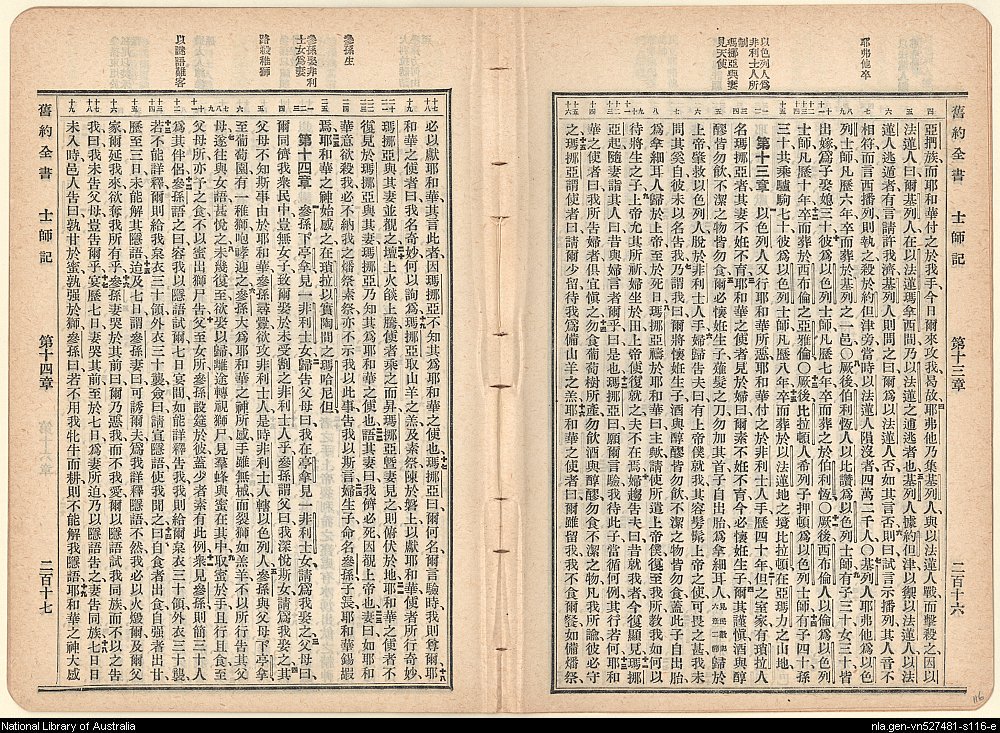 舊約全書 士師記 第十三章 二百十六
耶弗他卒
以色列人為
非利士人所
制
瑪挪亞與妻
見天使
亞捫族而耶和華付之於我手今日爾來攻我曷故耶弗他乃集基列人與以法蓮人戰而擊殺之因以
法蓮人曰爾基列人在以法蓮瑪拿西間乃以法蓮之逋逃者也基列人據約但津以禦以法蓮人以法
蓮人逃遁者有言請許我濟基列人則問之曰爾以法蓮人否如其言否則曰試言示播列其人音不
相符而言西播列則執之殺於約但津旁當時以法蓮人隕沒者四萬二千人〇基列人耶弗他為以色
列士師凡歷六年卒而葬於基列之一邑〇厥後伯利恆人以比讚為以色列士師有子三十女三十皆
出嫁為子娶媳三十彼為以色列士師凡歷七年卒而葬之於伯利恆〇厥後西布倫人以倫為以色列
士師凡歷十年卒而葬於西布倫之亞雅倫〇厥後比拉頓人希列子押頓為以色列士師有子四十孫
三十共乘驢駒七十彼為以色列士師凡歷八年卒而葬於以法蓮地之境比拉頓在亞瑪力之山地
第十三章 以色列人又行耶和華所惡耶和華付之於非利士人手歷四十年但之室家有瑣拉人
名瑪挪亞者其妻不妊不育耶和華之使者見於婦曰爾素不妊不育今必懷妊生子爾其謹慎酒與醇
醪皆勿飲不潔之物皆勿食爾必懷妊生子薙髮之刀勿加其首子自出胎為拿細耳人始
上帝肇救以色列人脫於非利士人手婦歸告夫曰有上帝僕就我其容髣髴上帝之使可畏之甚我未
問其奚自彼未以名告我乃謂我曰爾將懷妊生子酒與醇醪皆勿飲不潔之物皆勿食蓋此子自出胎
為拿細耳人歸於上帝至於死日瑪挪亞禱於耶和華曰主歟請使所遣上帝僕復至我所教我如何以
待將生之子上帝允其所祈婦坐於田上帝使復就之夫不在焉婦趨告夫曰昔就我者今復顯見瑪挪
亞起隨妻詣其人曰昔與婦言者爾乎曰是也瑪挪亞曰願爾言驗我待此子當循何例行其若何耶和
華之使者曰我所告婦者俱宜慎之勿食葡萄樹所產勿飲酒與醇醪勿食不潔之物凡我所諭彼必守
之瑪挪亞謂使者曰請爾少留待我為備山羊之羔耶和華之使者曰爾雖留我我不食爾餐如備燔祭
舊約全書 士師記 第十四章 二百十七
參孫生
參孫娶非利
士女為妻
路殺稚獅
以謎語難客
必以獻耶和華其言此者因瑪挪亞不知其為耶和華之使也瑪挪亞曰爾何名爾言驗時我則尊爾耶
和華之使者曰我名奇妙何以詢為瑪挪亞取山羊之羔及素祭陳於磐上以獻耶和華使者所行奇妙
瑪挪亞與其妻並觀之壇上火燄上騰使者乘之而昇瑪挪亞曁妻見之則俯伏於地耶和華之使者不
復見於瑪挪亞與其妻瑪挪亞乃知其為耶和華之使也語其妻曰我儕必死因觀上帝也妻曰如耶和
華意欲殺我必不納我之燔祭素祭亦不示我以此事告我以斯言婦生子命名參孫子長耶和華錫嘏
焉耶和華之神始感之在瑣拉以實陶間之瑪哈尼但
第十四章 參孫下亭拿見一非利士女歸告父母曰我在亭拿見一非利士女請為我娶之父母曰
爾同儕我衆民中豈無女子致爾娶於未受割之非利士人乎參孫謂父曰我深悅斯女請爲我娶之其
父母不知斯事由於耶和華參孫尋釁欲攻非利士人是時非利士人轄以色列人參孫與父母下亭拿
至葡萄園有一稚獅咆哮迎之參孫大為耶和華之神所感手雖無械而裂獅如羔羊不以所行告其父
母遂往與女語甚悅之未幾復至欲娶以歸離途轉視獅尸見羣蜂與蜜在其中取蜜於手且行且食至
父母所亦予之食不以蜜出獅尸告父至女所參孫設筵於彼蓋少者素有此例衆見參孫則簡三十人
為其伴侶參孫語之曰容我以隱語試爾七日宴間如能詳釋告我我則給爾枲衣三十領外衣三十襲
若不能詳釋爾則給我枲衣三十領外衣三十襲僉曰請宣隱語使我聞之曰自食者出食自强者出甘
歷至三日未能解其隱語迨及七日謂參孫妻曰可誘爾夫為我詳釋隱語不然我必以火燬爾及爾父
家爾延我來欲奪我所有乎參孫妻哭於其前曰爾乃惡我而不我愛爾以隱語試我同族而不以之告
我曰我未告父母豈告爾乎宴歷七日妻哭其前至於七日為妻所迫乃以隱語告之妻告同族七日日
未入時邑人告曰孰甘於蜜孰强於獅參孫曰若不用我牝牛而耕則不能解我隱語耶和華之神大感
National Library of Australia
nla.gen-vn527481-s116-e